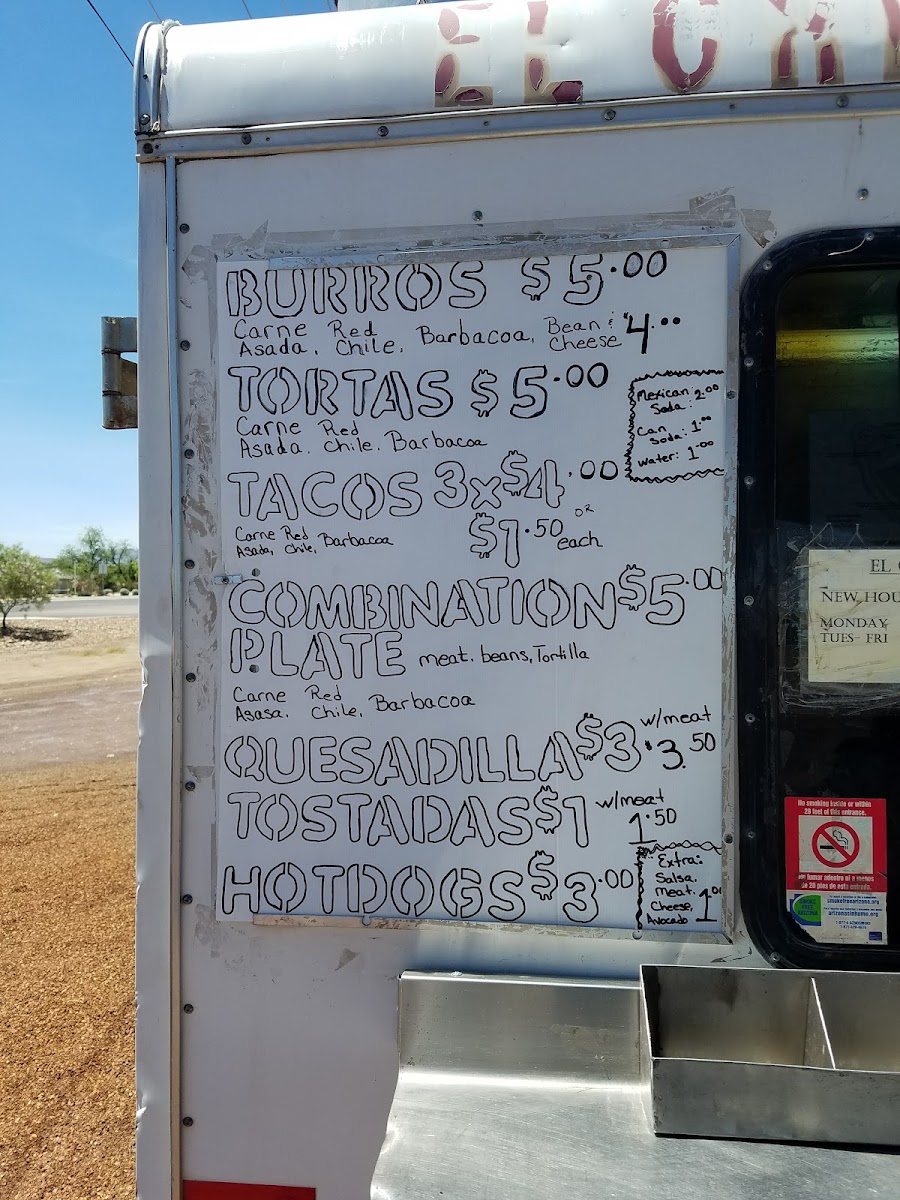 BURROS $5.00
Carne Asada, Red Chile, Barbacoa, Bean & Cheese $4.00
TORTAS $5.00
Carne Asada, Red Chile, Barbacoa
Mexican Soda: 2.00
Can Soda: 1.00
Water: 1.00
TACOS 3x$4.00
OR
Carne Asada, Red Chile, Barbacoa
$1.50 each
COMBINATION $5.00
PLATE meat, beans, Tortilla
Carne Asasa, Red Chile, Barbacoa
QUESADILLA $3 w/meat $3.50
TOSTADAS $1 w/meat 1.50
HOTDOGS $3.00
Extra:
Salsa,
Meat,
Cheese, 1.00
Avocado
EL
NEW HOU
MONDAY
TUES- FRI
No smoking inside or within
20 feet of this entrance.
smokefreearizona.org